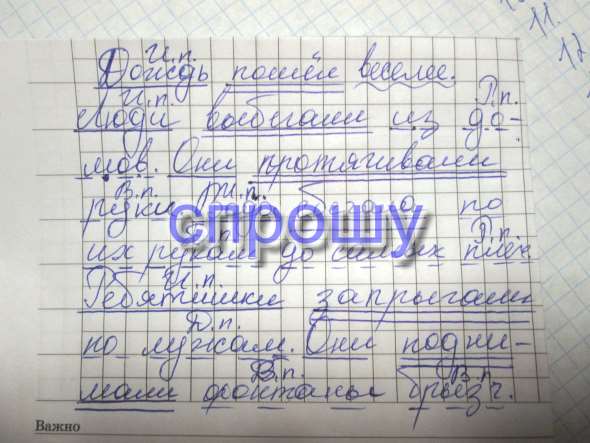 11.
12
И.п.
Дождь пошёл веселее.
И.п. Р.п.
Люди выбегали из до-
мов. Они протягивали
В.п.
руки по
спрошу
Р.п.
их рукам до самых плеч
И.п.
Ребятишки запрыгали
Д.п.
по лужам. Они подни-
В.п. В.п.
мали фонтаны брызг.
Важно